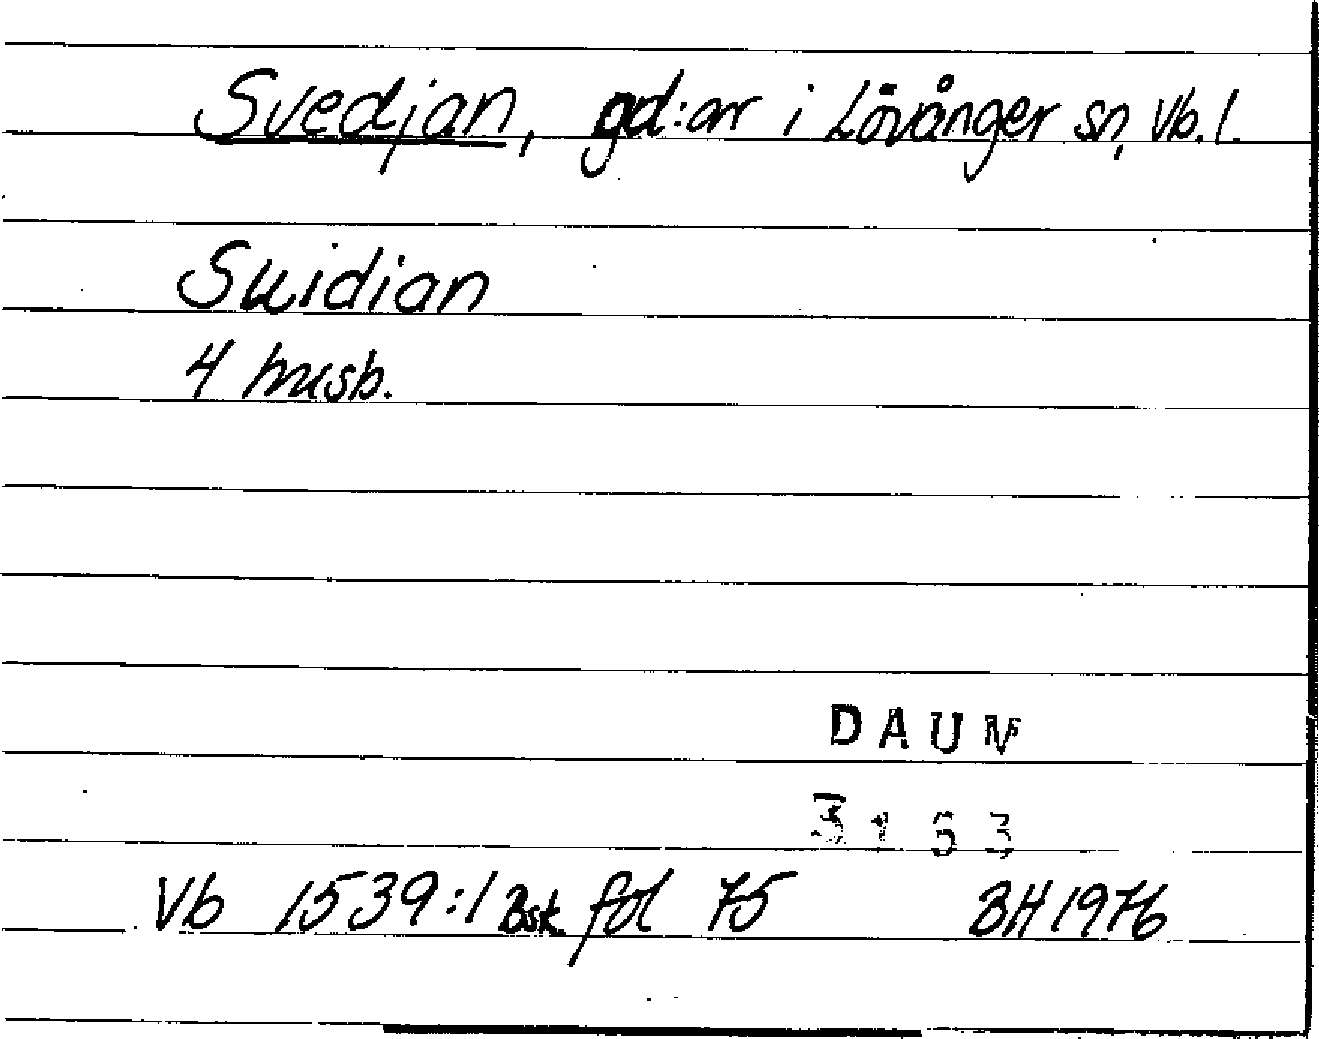 Svedjan, gd:ar i Lövånger sn, Vb. l.
Suidian
4 husb.
DAUM
3153
Vb 1539:1 Bsk fol 75 BH 1976